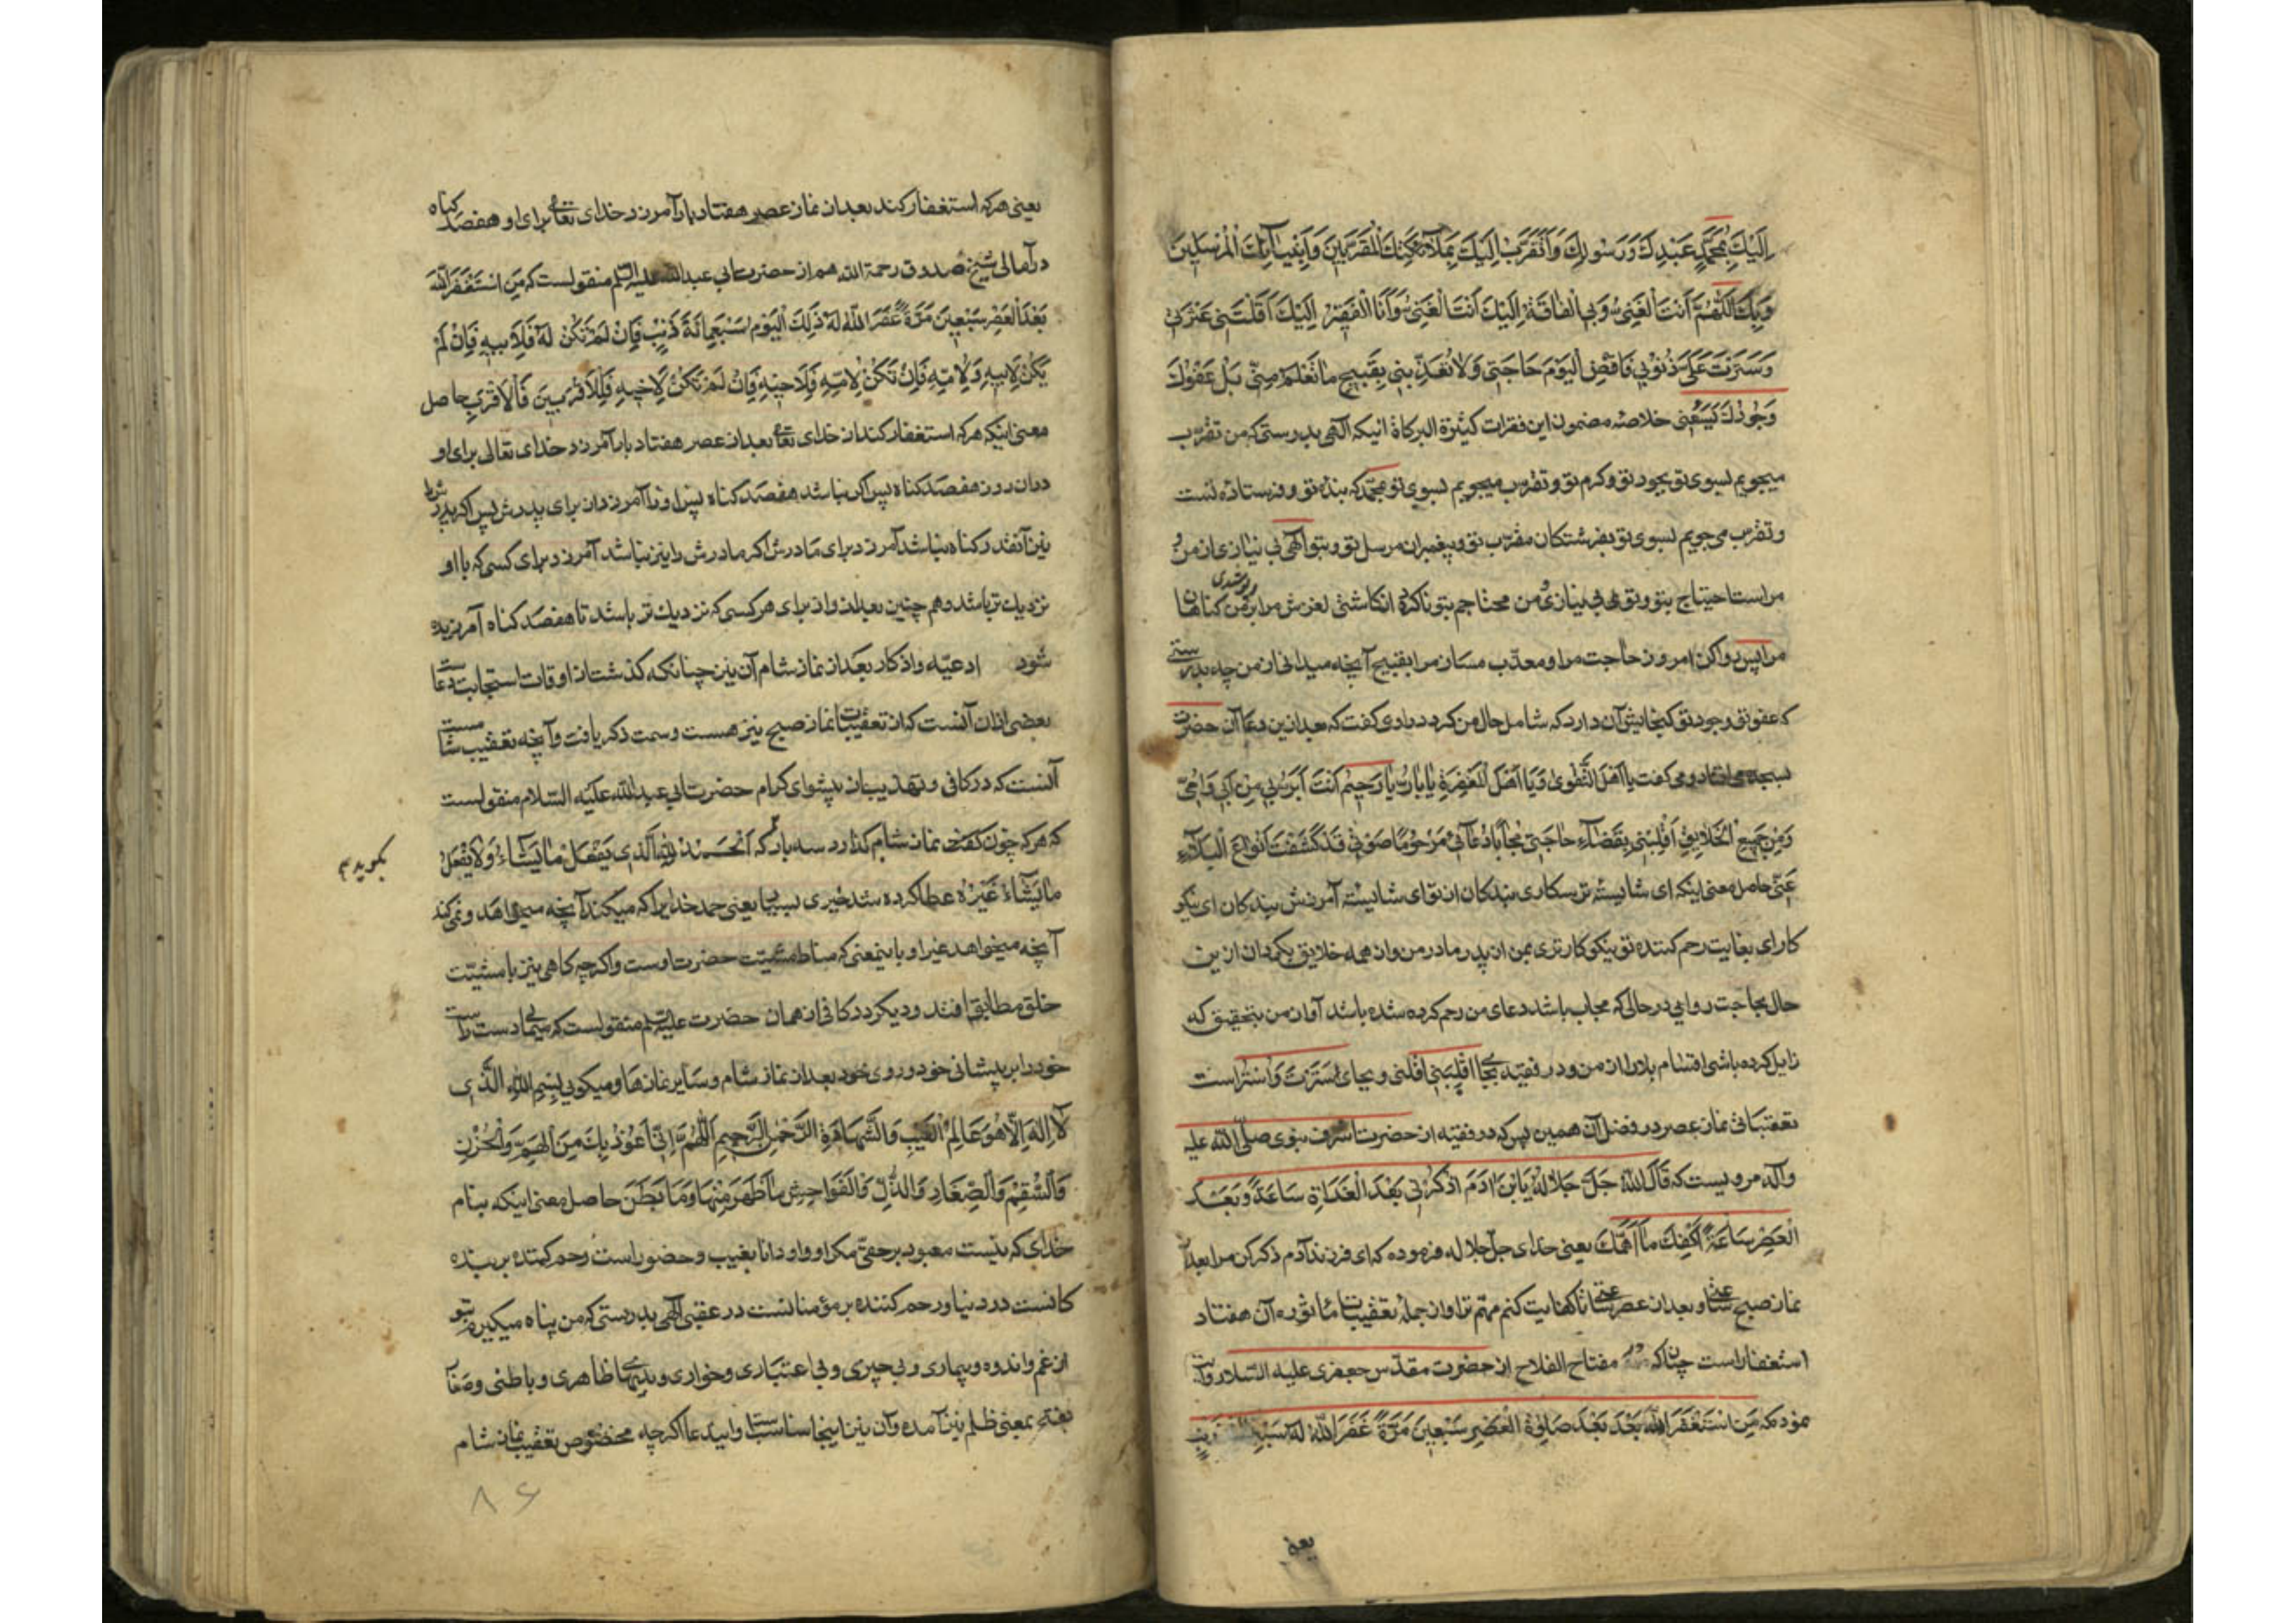 اِلَيْكَ بِمُحَمَّدٍ عَبْدِكَ وَرَسُولِكَ وَاَتَقَرَّبُ اِلَيْكَ بِمَلَآئِكَتِكَ الْمُقَرَّبِينَ وَاَنْبِيَآئِكَ الْمُرْسَلِينَ
وَبِكَ اَللّٰهُمَّ اَنْتَ الْغَنِيُّ وَبِي الْفَاقَةُ اِلَيْكَ اَنْتَ الْغَنِيُّ وَاَنَا الْفَقِيْرُ اِلَيْكَ اَقَلْتَنِي عَثْرَتِي
وَسَتَرْتَ عَلَىَّ ذُنُوْبِي فَاقْضِ الْيَوْمَ حَاجَتِي وَلَا تُعَذِّبْنِي بِقَبِيحِ مَا تَعْلَمُ مِنِّي بَلْ عَفْوُكَ
وَجُوْدُكَ يَسَعُنِي خلاصهٔ مضمون این فقرات کثیرة البرکاة انیکه الهی بدرستی که من تقرب
میجویم بسوی تو بجود تو و کرم تو و تقرب میجویم بسوی تو بمحمد که بنده تو و فرستاده تست
و تقرب می جویم بسوی تو بفرشتکان مقرب تو و پیغمبران مرسل تو و بتو الهی بی نیازی از من و
مراست احتیاج بتو و تو بی نیازی و من محتاجم بتو انکاشتی لغزش مرا و پوشیدی بر من کناهان
مرا پس روا کن امروز حاجت مرا و معذب مساز مرا بقبیح آنچه میدانی از من چه بدرستی
که عفو تو و جود تو کنجایش آن دارد که شامل حال من کردد راوی کفت که بعد ازین دعا آن حضرت
بسجده می افتاد و می کفت يَا اَهْلَ التَّقْوىٰ وَيَا اَهْلَ الْمَغْفِرَةِ يَا بَارُّ يَا رَحِيْمُ اَنْتَ اَبَرُّ بِي مِنْ اَبِي وَاُمِّي
وَمِنْ جَمِيعِ الْخَلَايِقِ اَقْلِبْنِي بِقَضَآءِ حَاجَتِي مُجَابًا دُعَآئِي مَرْحُوْمًا صَوْتِي قَدْ كَشَفْتَ اَنْوَاعَ الْبَلَآءِ
عَنِّي حاصل معنی اینکه ای شایستهٔ ترسکاری بندکان از تو ای شایستهٔ آمرزش بندکان ای نیکو
کار ای بغایت رحم کننده تو نیکو کارتری بمن از پدر و مادر من و از همه خلایق بکردان از این
حال بحاجت روایی در حالی که مجاب باشد دعای من رحم کرده شده باشد آواز من بتحقیق که
زایل کرده باشی اقسام بلا را از من و در فقیه بجا اقلبنی اقلنی و بجای سَتَرْتَ وَاسْتُرْ است
تعقیبات نماز عصر در فضل آن همین بس که در فقیه از حضرت اشرف نبوی صلی الله علیه
وآله مرویست که قَالَ اللّٰهُ جَلَّ جَلَالُهُ يَا بْنَ اٰدَمَ اذْكُرْنِي بَعْدَ الْغَدَاةِ سَاعَةً وَبَعْدَ
الْعَصْرِ سَاعَةً اَكْفِكَ مَا اَهَمَّكَ یعنی خدای جل جلاله فرموده که ای فرزند آدم ذکر کن مرا بعد از
نماز صبح ساعتی و بعد از عصر ساعتی تا کفایت کنم مهم ترا و از جملهٔ تعقیبات ماثوره آن هفتاد
استغفار است چنانکه مفتاح الفلاح از حضرت مقدس جعفری علیه السلام روایت
نموده که مَنِ اسْتَغْفَرَ اللّٰهَ بَعْدَ صَلوٰةِ الْعَصْرِ سَبْعِينَ مَرَّةً غَفَرَ اللّٰهُ لَهُ
یعنی
یعنی هر که استغفار کند بعد از نماز عصر هفتاد بار آمرزد خدای تعالی برای او هفصد کناه
در آمالی شیخ صدوق رحمة الله هم از حضرت ابی عبد الله علیه السلم منقولست که مَنِ اسْتَغْفَرَ اللّٰهَ
بَعْدَ الْعَصْرِ سَبْعِينَ مَرَّةً غَفَرَ اللّٰهُ لَهُ ذٰلِكَ الْيَوْمَ سَبْعَمِائَةَ ذَنْبٍ فَاِنْ لَمْ تَكُنْ لَهُ فَلِاَبِيهِ فَاِنْ لَمْ
يَكُنْ لِاَبِيهِ فَلِاُمِّهِ فَاِنْ تَكُنْ لِاُمِّهِ فَلِاَخِيهِ فَاِنْ لَمْ تَكُنْ لِاَخِيهِ فَلِلْاَقْرَبِينَ فَالْاَقْرَبِ حاصل
معنی اینکه هر که استغفار کند از خدای تعالی بعد از عصر هفتاد بار آمرزد خدای تعالی برای او
در ان روز هفصد کناه پس اکر نباشد هفصد کناه پس او را آمرزد ان برای پدرش پس اکر پدرش را
نیز آنقدر کناه نباشد آمرزد برای مادرش اکر مادرش را نیز نباشد آمرزد برای کسی که با او
نزدیك تر باشد و هم چنین بعد از و از برای هر کسی که نزدیك تر باشد تا هفصد کناه آمرزیده
شود ادعیّه و اذکار بعد از نماز شام آن نیز چنانکه کذشت از اوقات استجابت دعاست
بعضی ازان آنست که از تعقیبات نماز صبح نیز هست و سمت ذکر یافت و آنچه تعقیب شامست
آنست که در کافی و تهذیب از پیشوای کرام حضرت ابی عبد الله علیه السلام منقولست
که هر که چون نماز شام کذارد سه بار که اَلْحَمْدُ لِلّٰهِ الَّذِي يَفْعَلُ مَا يَشَاءُ وَلَا يَفْعَلُ
بکوید
مَا يَشَاءُ غَيْرُهُ عطا کرده شد خیری بسیار یعنی حمد خدایرا که میکند آنچه میخواهد و نمی کند
آنچه میخواهد غیر او باینمعنی که مناط مشیّت حضرت اوست و اکر چه کاهی نیز با مشیّت
خلق مطابق افتد و دیکر در کافی از همان حضرت علیه السلم منقولست که میمالی دست راست
خود را بر پیشانی خود و روی خود بعد از نماز شام و سایر نمازها و میکویی بِسْمِ اللّٰهِ الَّذِي
لَا اِلٰهَ اِلَّا هُوَ عَالِمُ الْغَيْبِ وَالشَّهَادَةِ الرَّحْمٰنِ الرَّحِيمِ اَللّٰهُمَّ اِنِّي اَعُوْذُ بِكَ مِنَ الْهَمِّ وَالْحُزْنِ
وَالسُّقْمِ وَالصِّغَارِ وَالذُّلِّ وَالْفَوَاحِشِ مَا ظَهَرَ مِنْهَا وَمَا بَطَنَ حاصل معنی اینکه بنام
خدای که نیست معبود برحقّی مکر او و او دانا بغیب و حضور است رحم کننده بر بنده
کانست در دنیا و رحم کننده بر مؤمنانست در عقبی الهی بدرستی که من پناه میکیرم بتو
از غم و اندوه و بیماری و بی چیزی و بی اعتباری و خواری و بدیهای ظاهری و باطنی و صغار
بفتح بمعنی ظلم نیز آمده و آن نیز اینجا مناسبست و این دعا اکرچه مخصوص تعقیب نماز شام
۸۶